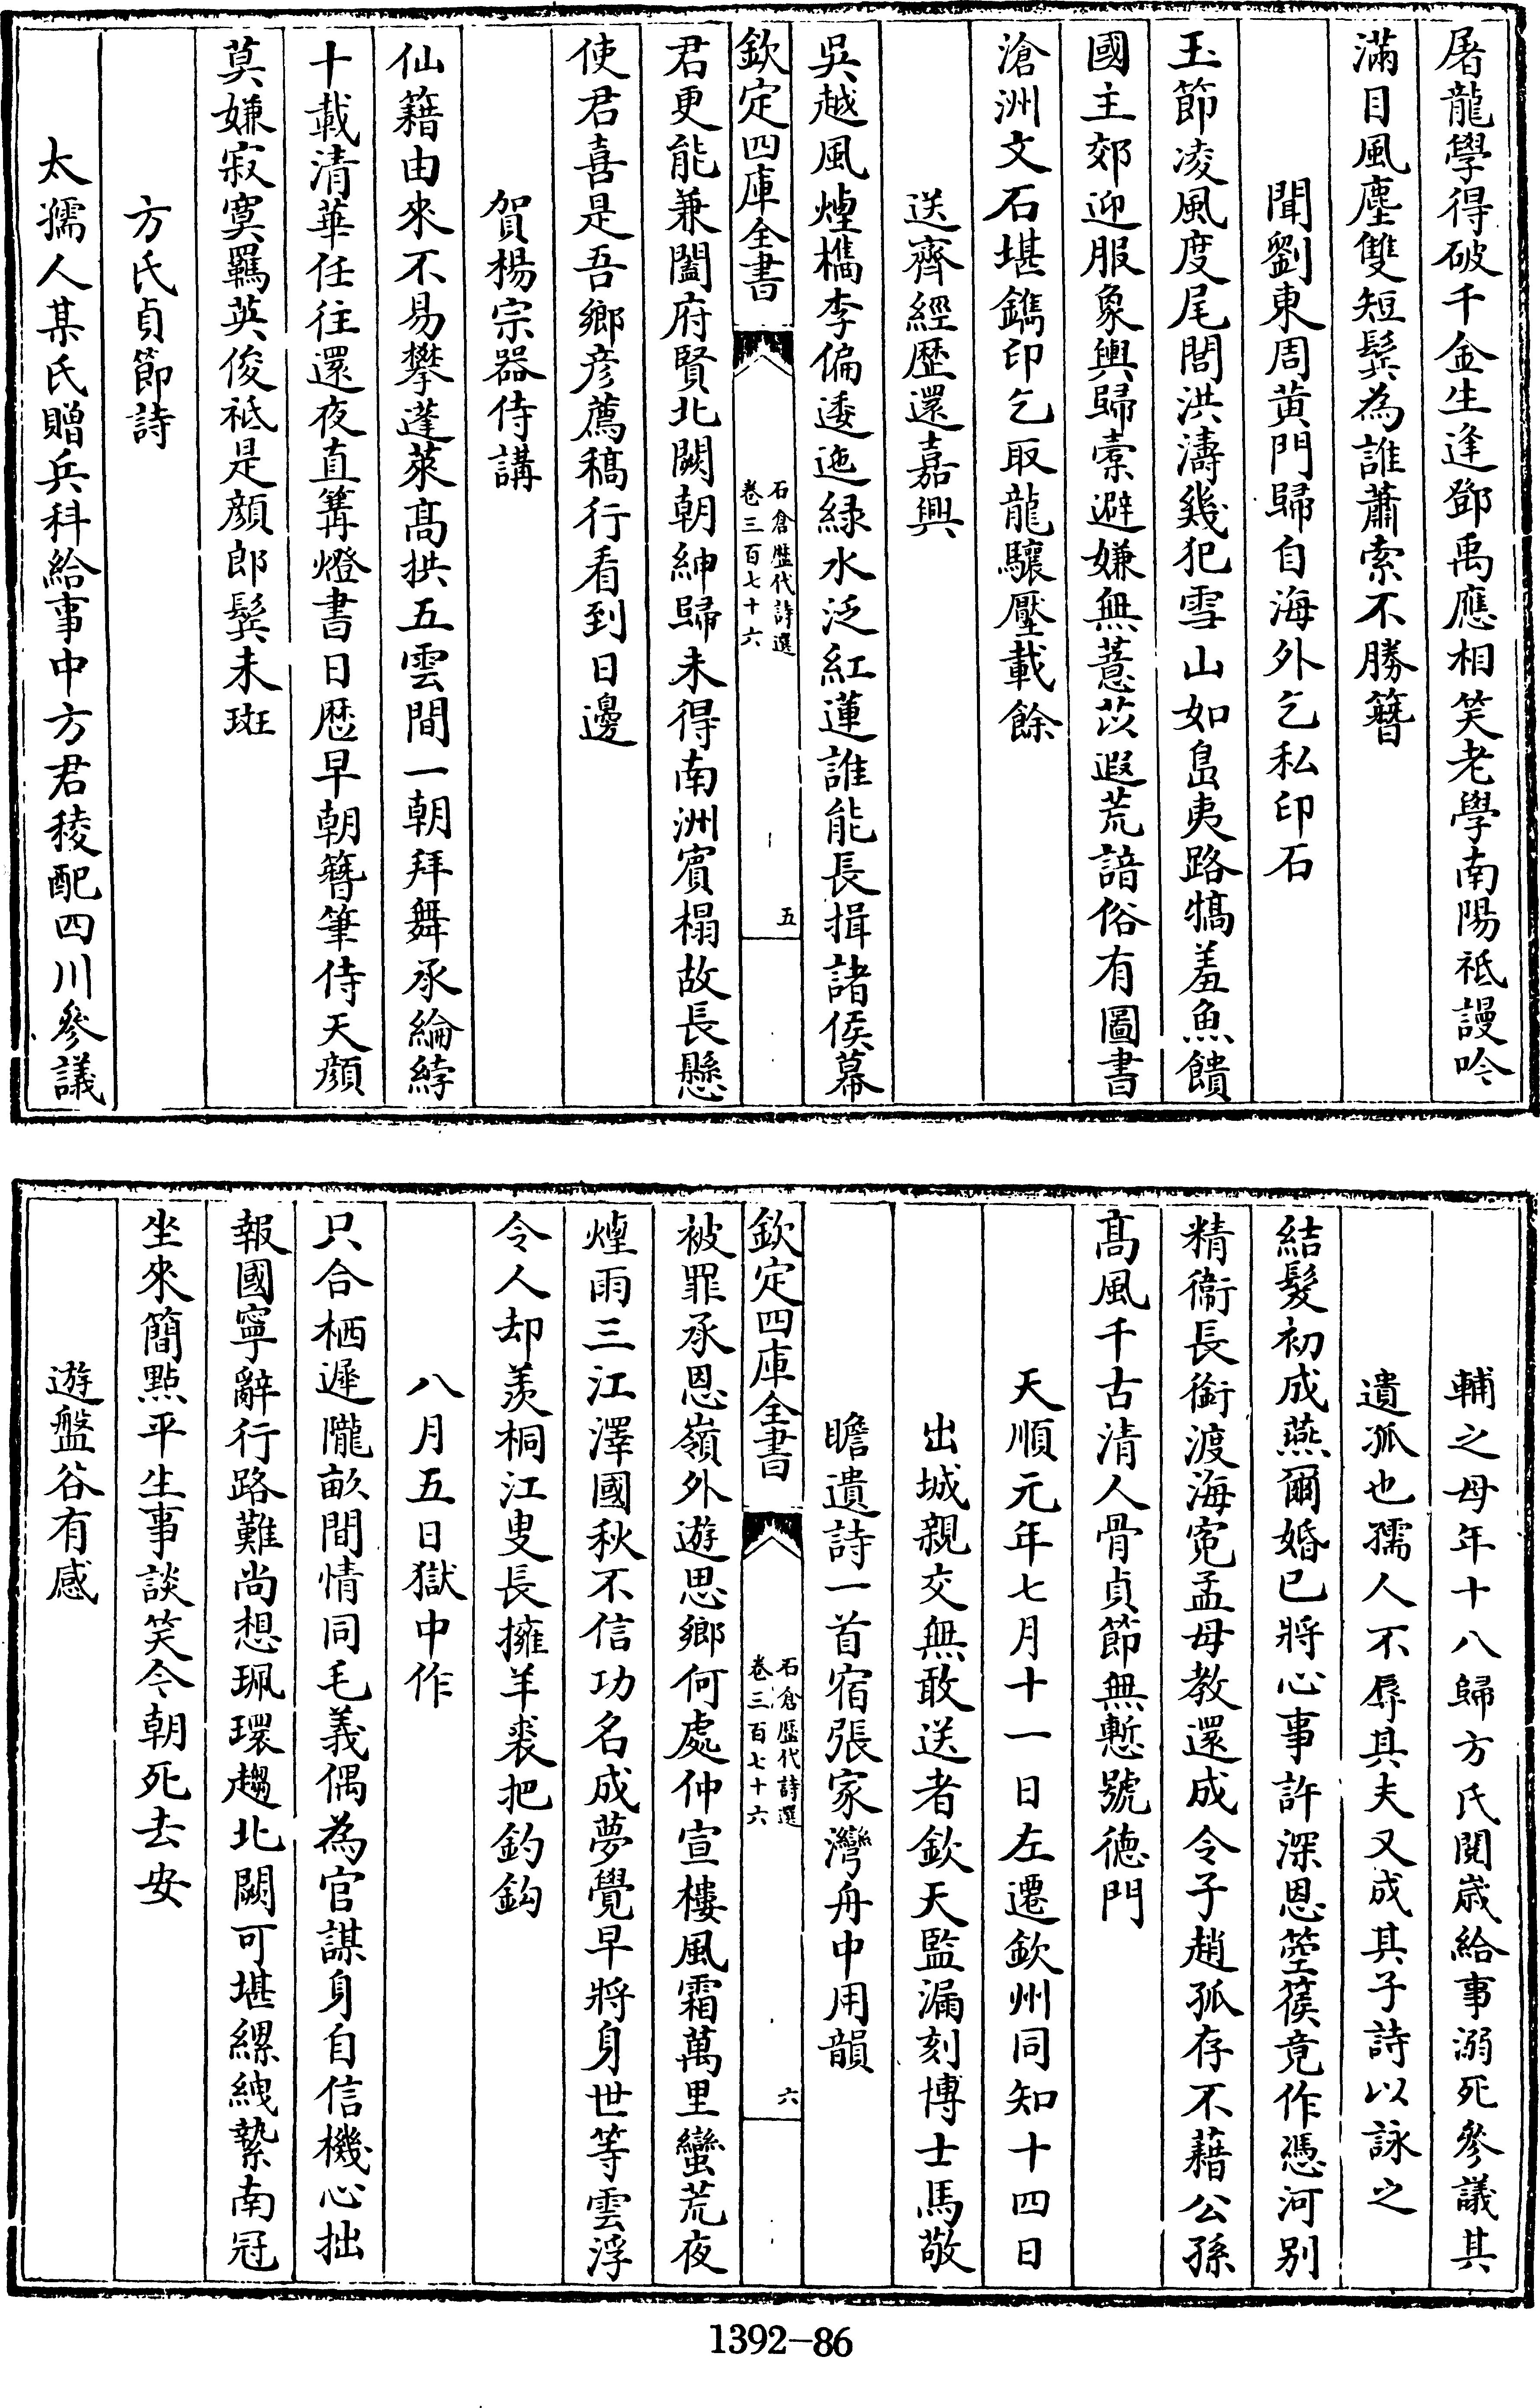 屠龍學得破千金生逢鄧禹應相笑老學南陽祗謾吟
滿目風塵雙短鬂為誰蕭索不勝簪
聞劉東周黄門歸自海外乞私印石
玉節凌風度尾閭洪濤幾犯雪山如島夷路犒羞魚饋
國主郊迎服象輿歸橐避嫌無薏苡遐荒諳俗有圖書
滄洲文石堪鐫印乞取龍驤壓載餘
送齊經歷還嘉興
吳越風煙檇李偏逶迤緑水泛紅蓮誰能長揖諸侯幕
欽定四庫全書
石倉歷代詩選
卷三百七十六
五
君更能兼闔府賢北闕朝紳歸未得南洲賓榻故長懸
使君喜是吾鄉彦薦稿行看到日邊
賀楊宗器侍講
仙籍由來不易攀蓬萊髙拱五雲間一朝拜舞承綸綍
十載清華任往還夜直篝燈書日歴早朝簪筆侍天顔
莫嫌寂寞羈英俊祗是顔郎鬂未斑
方氏貞節詩
太孺人某氏贈兵科給事中方君稜配四川參議
輔之母年十八歸方氏閲嵗給事溺死參議其
遺孤也孺人不辱其夫又成其子詩以詠之
結髮初成燕爾婚已將心事許深恩箜篌竟作憑河别
精衞長銜渡海寃孟母教還成令子趙孤存不藉公孫
髙風千古清人骨貞節無慙號德門
天順元年七月十一日左遷欽州同知十四日
出城親交無敢送者欽天監漏刻博士馬敬
瞻遺詩一首宿張家灣舟中用韻
欽定四庫全書
石倉歷代詩選
卷三百七十六
六
被罪承恩嶺外遊思鄉何處仲宣樓風霜萬里蠻荒夜
煙雨三江澤國秋不信功名成夢覺早將身世等雲浮
令人却羨桐江叟長擁羊裘把釣鈎
八月五日獄中作
只合栖遲隴畝間情同毛義偶為官謀身自信機心拙
報國寧辭行路難尚想珮環趨北闕可堪縲絏縶南冠
坐來簡點平生事談笑今朝死去安
遊盤谷有感
1392-86